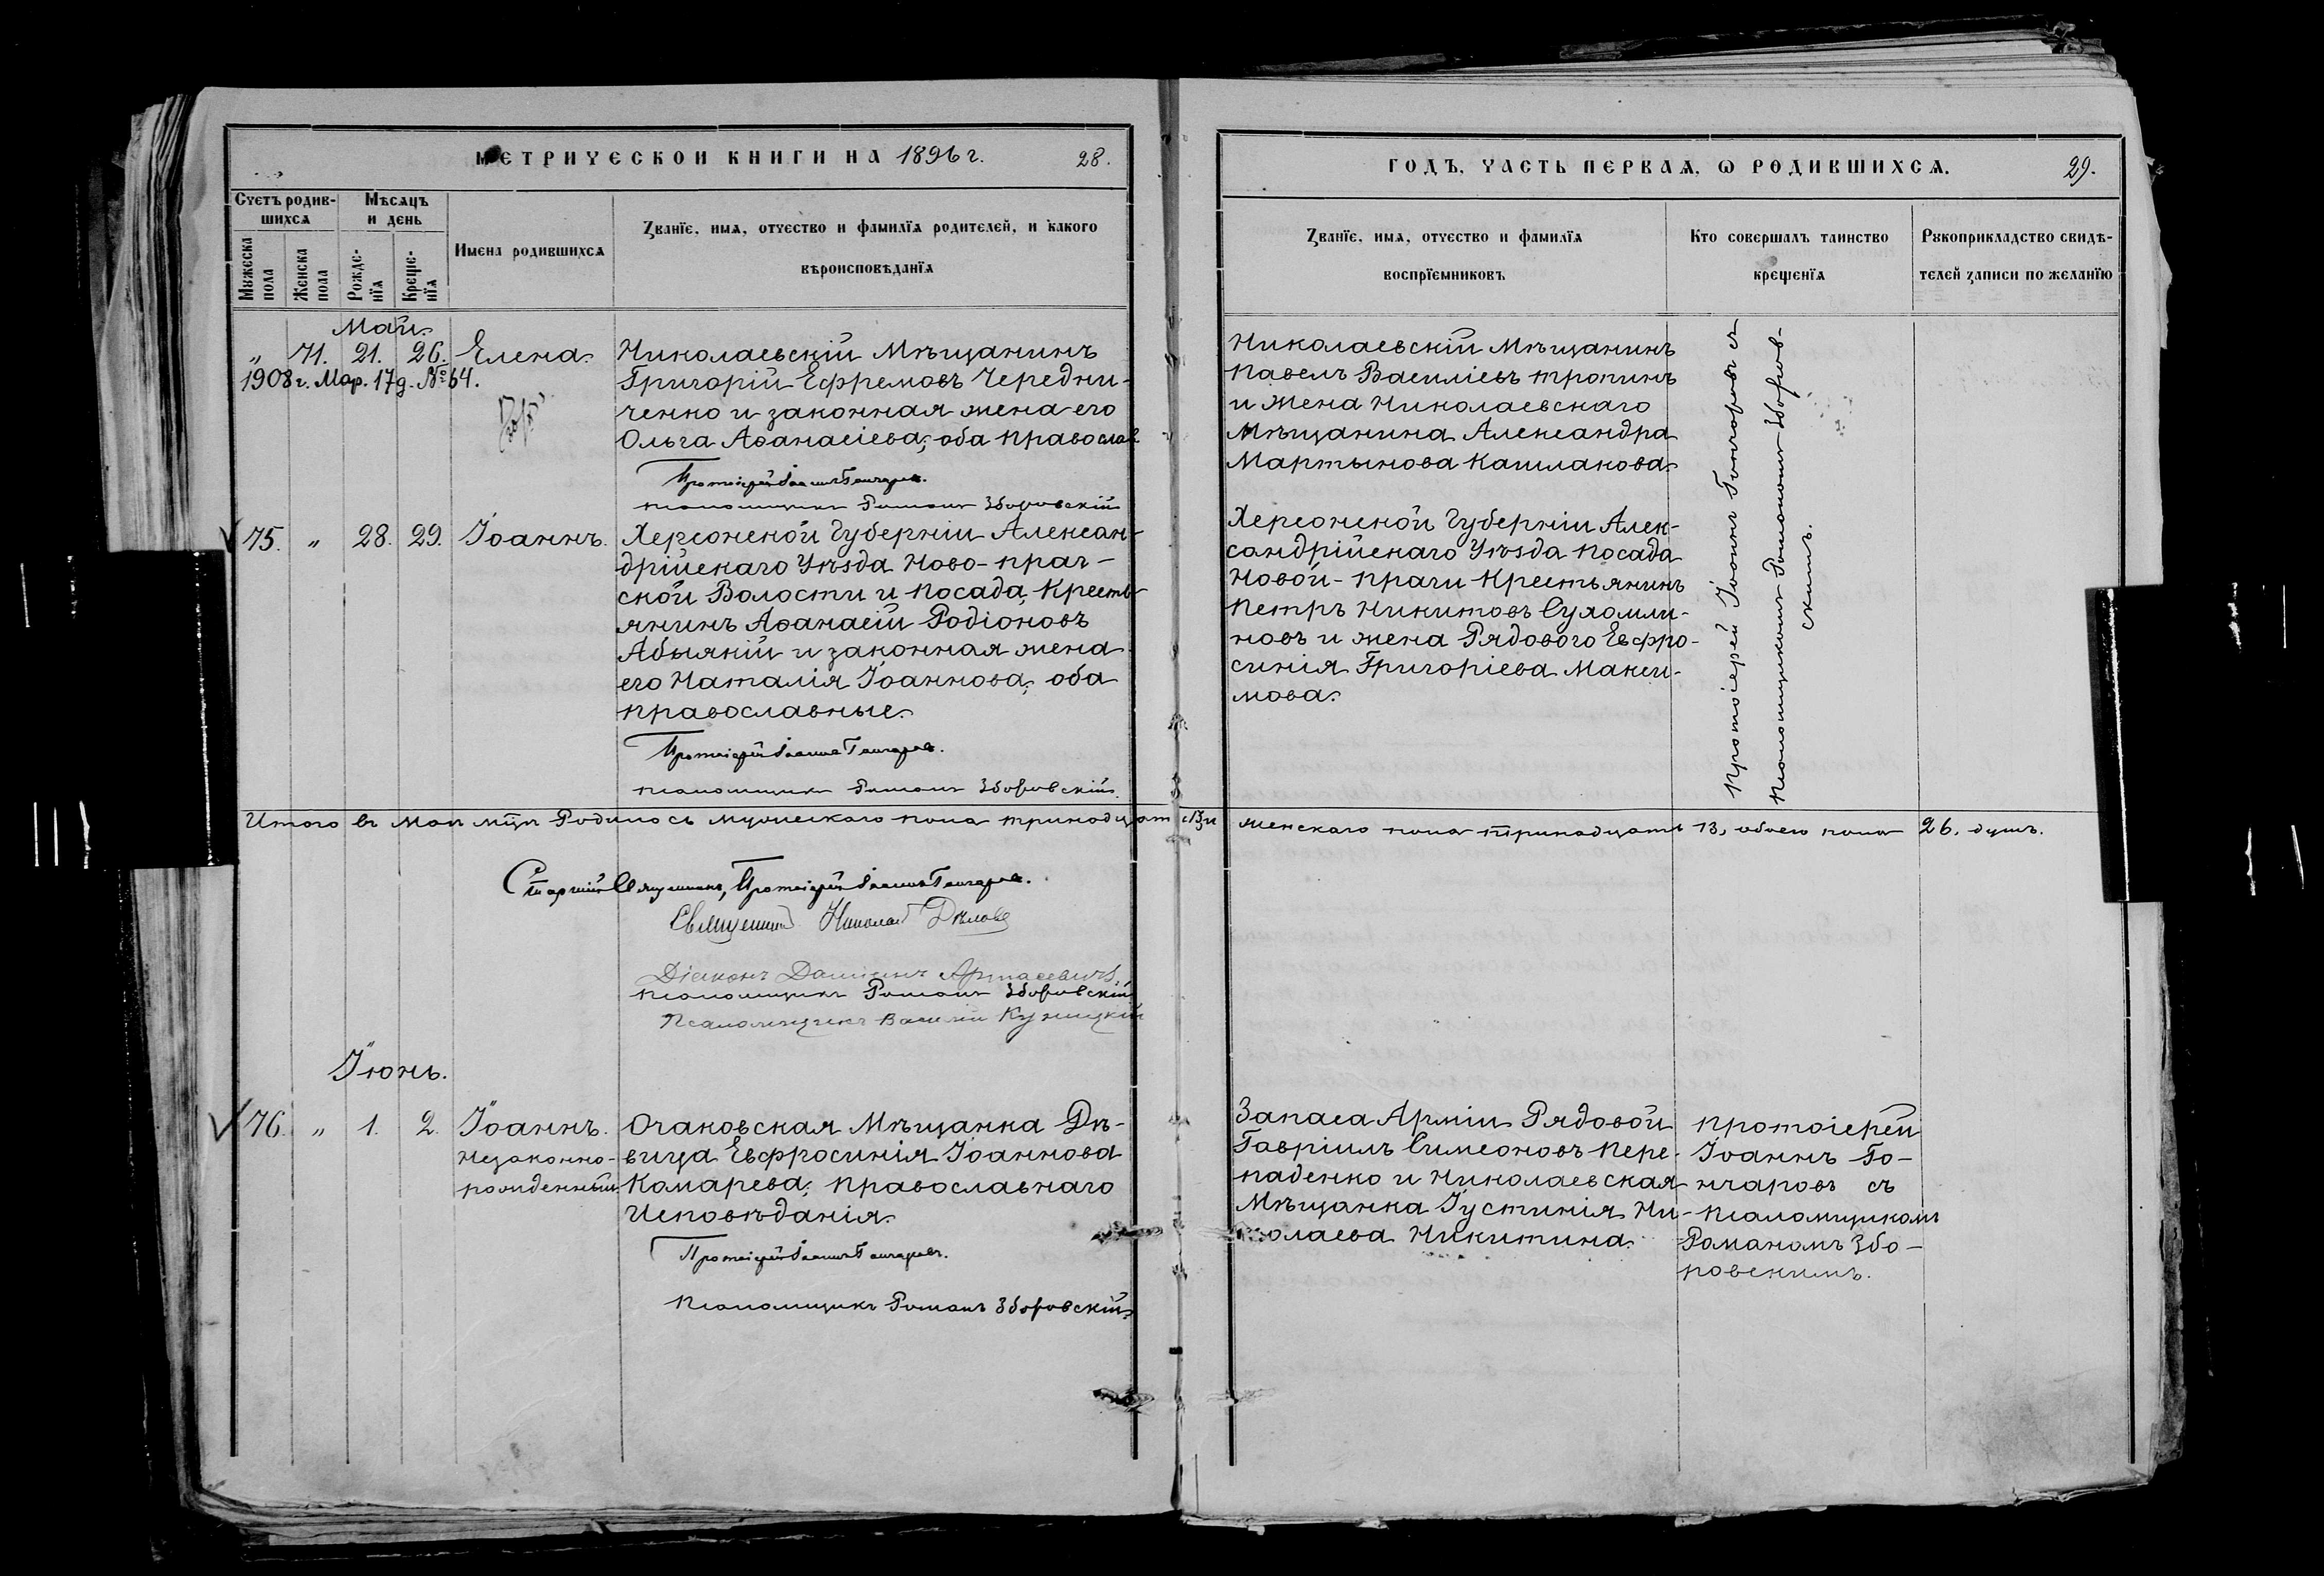 МЕТРИЧЕСКОЙ КНИГИ НА 1896 г. 28.
Счетъ родив-
шихся
Мѣсяцъ
и день
Мужеска
пола
Женска
пола
Рожде-
нїя
Креще-
нїя
Имена родившихся
Званїе, имя, отчество и фамилїя родителей, и какого
вѣроисповѣданїя
Май.
" 71. 21. 26. Елена.
1908 г. Мар. 17 д. № 64.
Николаевскій Мѣщанинъ
Григорій Ефремовъ Чередни-
ченко и законная жена его
Ольга Аѳанасіева; оба православ
Протоіерей Іоаннъ Гончаровъ.
Псаломщикъ Романъ Зборовскій
75. " 28. 29. Іоаннъ.
Херсонской Губерніи Алексан-
дрійскаго Уѣзда Ново-праг-
ской Волости и посада, Кресть-
янинъ Аѳанасій Родіоновъ
Абыякій и законная жена
его Наталія Іоаннова; оба
православные.
Протоіерей Іоаннъ Гончаровъ.
Псаломщикъ Романъ Зборовскій.
Итого въ Маѣ мцѣ Родилось мужескаго пола тринадцать 13, и
Старшій Священникъ, Протоіерей Іоаннъ Гончаровъ.
Священникъ Николай
Діаконъ
Псаломщикъ Романъ Зборовскій
Псаломщикъ Василій
Іюнь.
76. " 1. 2. Іоаннъ.
незаконно-
рожденный
Очаковская Мѣщанка Дѣ-
вица Евфросинія Іоаннова
Комарева; православнаго
Исповѣданія.
Протоіерей Іоаннъ Гончаровъ.
Псаломщикъ Романъ Зборовскій.
ГОДЪ, ЧАСТЬ ПЕРВАЯ, Ѡ РОДИВШИХСЯ. 29.
Званїе, имя, отчество и фамилїя
воспрїемниковъ
Кто совершалъ таинство
крещенїя
Рꙋкоприкладство свидѣ-
телей записи по желанїю
Николаевскій Мѣщанинъ
Павелъ Василіевъ Тропинъ
и жена Николаевскаго
Мѣщанина Александра
Мартынова Кашлакова.
Херсонской Губерніи Алек-
сандрійскаго Уѣзда посада
Новой-праги Крестьянинъ
Петръ Никитовъ Сухомли-
новъ и жена Рядового Евфро-
синія Григоріева Макси-
мова.
Протоіерей Іоаннъ Гончаровъ съ
Псаломщикомъ Романомъ Зборов-
скимъ.
женскаго пола тринадцать 13, обоего пола 26. душъ.
Запаса Арміи Рядовой
Гавріилъ Симеоновъ Пере-
паденко и Николаевская
Мѣщанка Іустинія Ни-
колаева Никитина.
Протоіерей
Іоаннъ Го-
нчаровъ съ
Псаломщикомъ
Романомъ Збо-
ровскимъ.